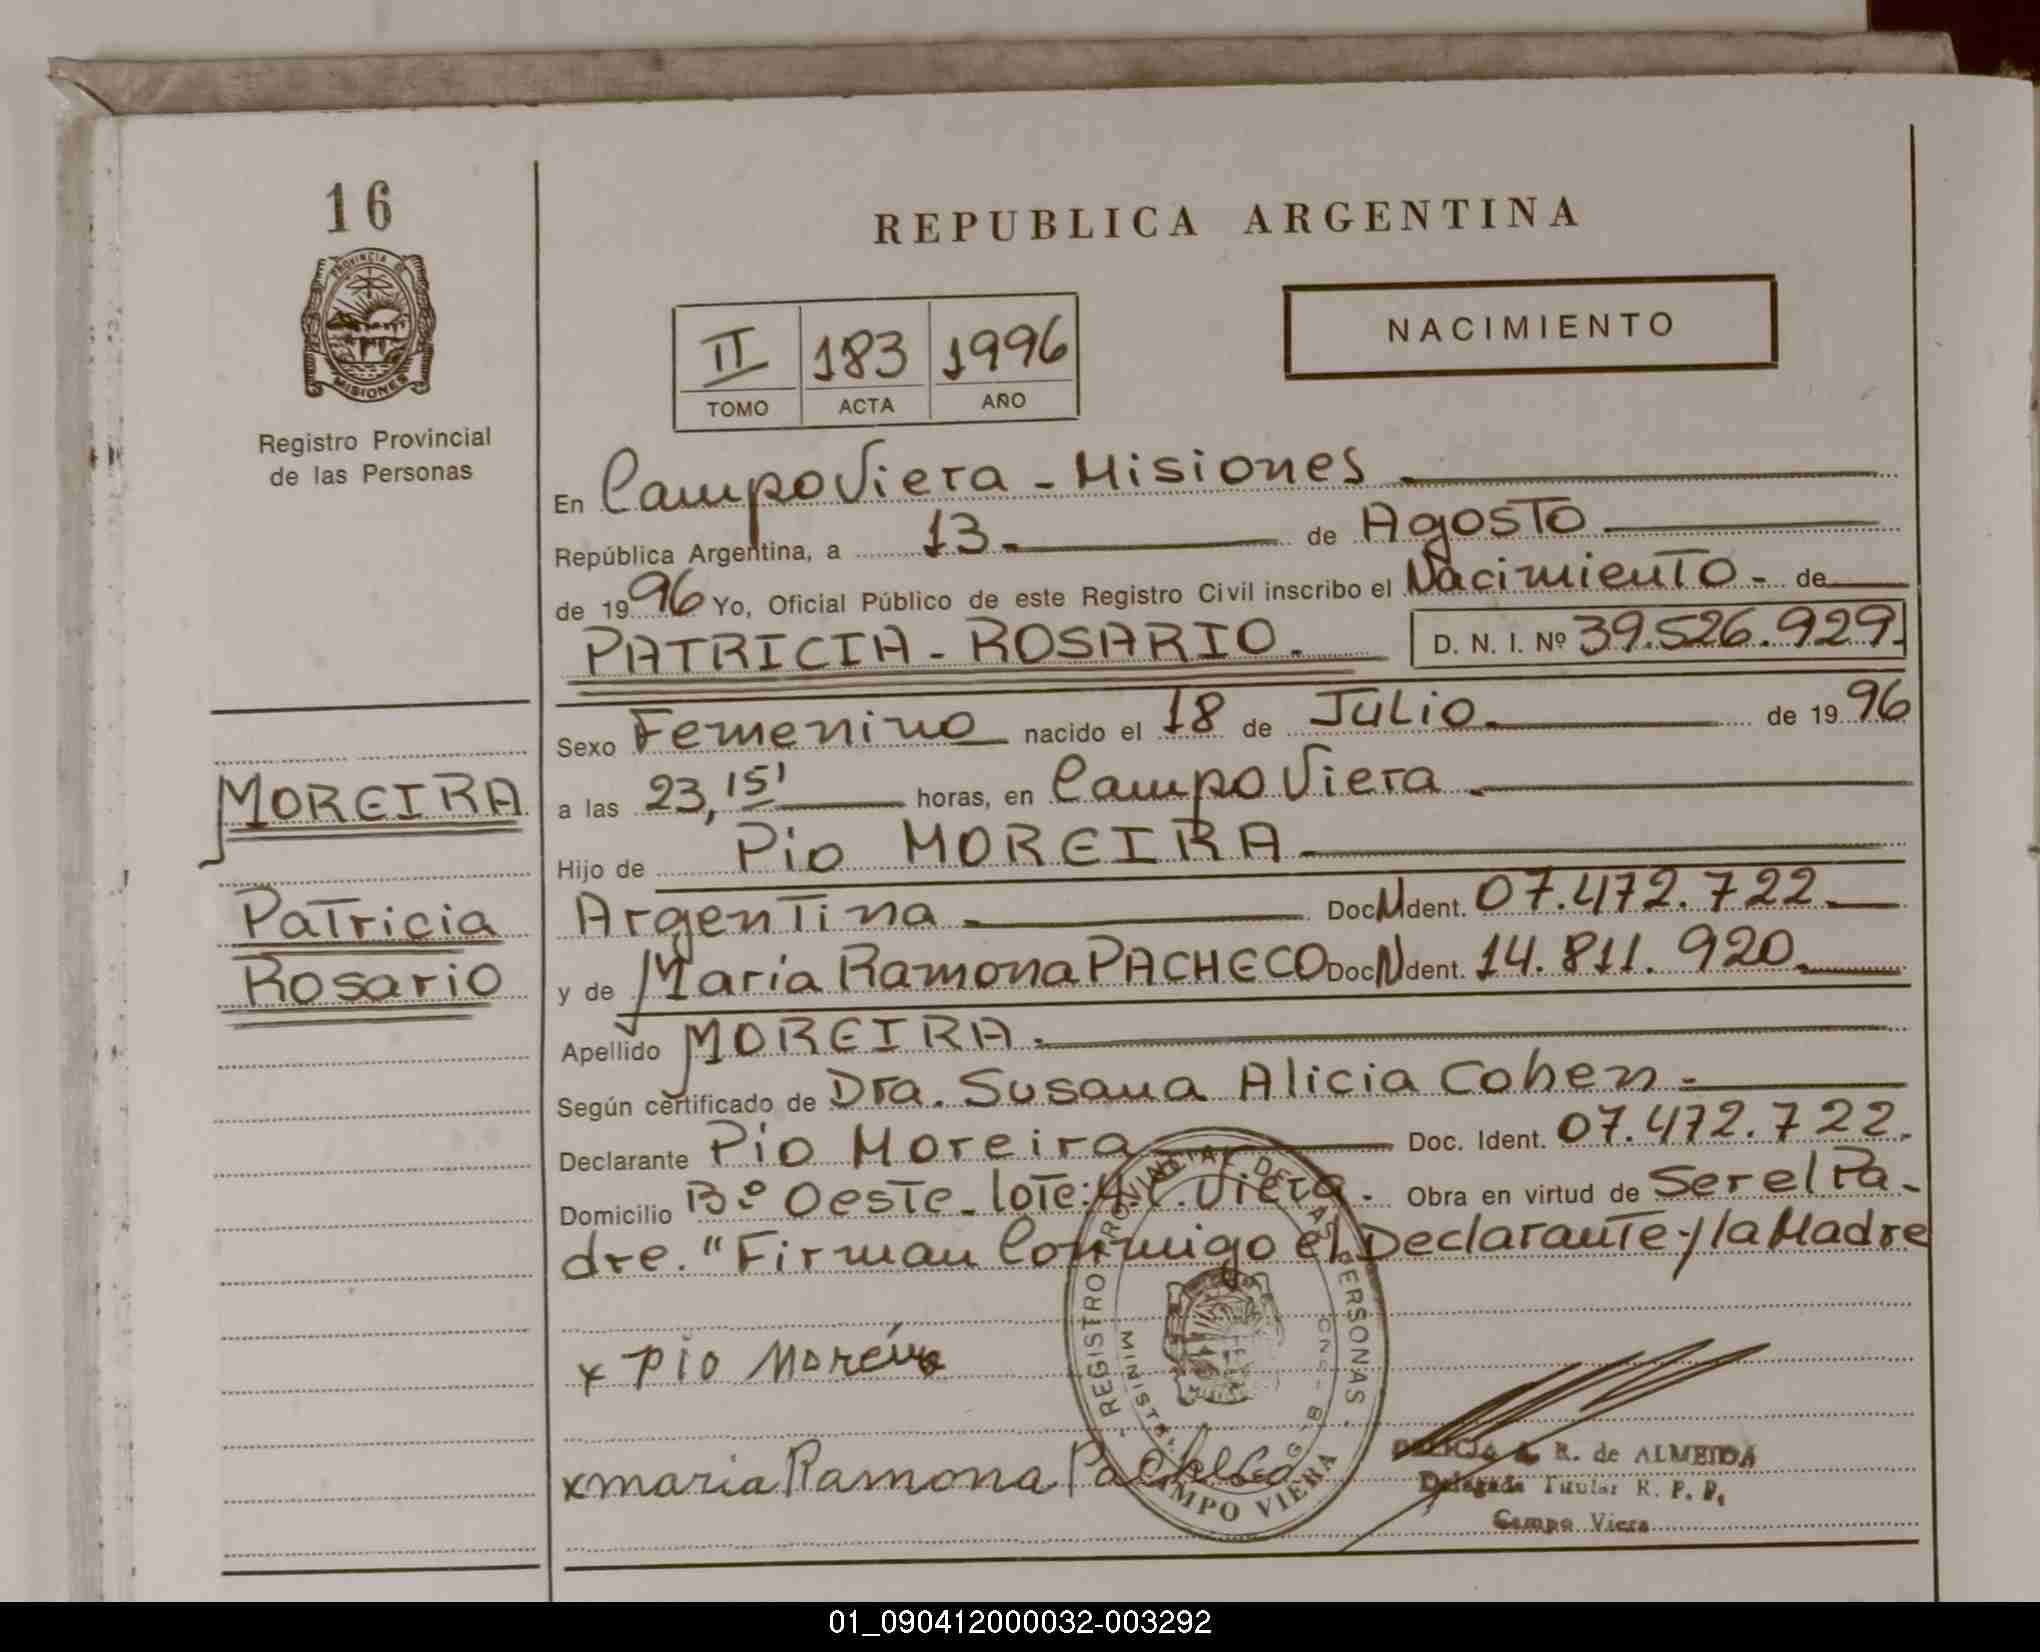 16
PROVINCIA DE
MISIONES
Registro Provincial
de las Personas
MOREIRA
Patricia
Rosario
REPUBLICA ARGENTINA
II 183 1996
TOMO ACTA AÑO
NACIMIENTO
En Campo Viera - Misiones
República Argentina, a 13 de Agosto
de 1996 Yo, Oficial Público de este Registro Civil inscribo el Nacimiento - de
PATRICIA - ROSARIO. D. N. I. Nº 39.526.929
Sexo Femenino nacido el 18 de Julio de 1996
a las 23,15' horas, en Campo Viera
Hijo de Pio MOREIRA
Argentina Doc. Ident. 07.472.722
y de Maria Ramona PACHECO Doc. Ident. 14.811.920
Apellido MOREIRA
Según certificado de Dra. Susana Alicia Cohen
Declarante Pio Moreira Doc. Ident. 07.472.722.
Domicilio Bº Oeste - lote: 4. C. Viera. Obra en virtud de Ser el Pa-
dre. "Firman Conmigo el Declarante y la Madre
REGISTRO PROVINCIAL DE LAS PERSONAS
CAMPO VIERA
x Pio Moreira
x maria Ramona Pacheco
R. de ALMEIDA
Delegada Titular R. P. P.
Campo Viera
01_090412000032-003292